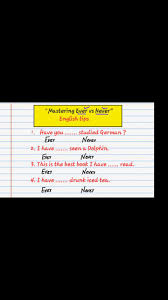 "Mastering Ever vs Never"
English tips
1. Have you ...... studied German ?
Ever Never
2. I have ...... seen a Dolphin.
Ever Never
3. This is the best book I have ...... read.
Ever Never
4. I have ...... drunk iced tea.
Ever Never